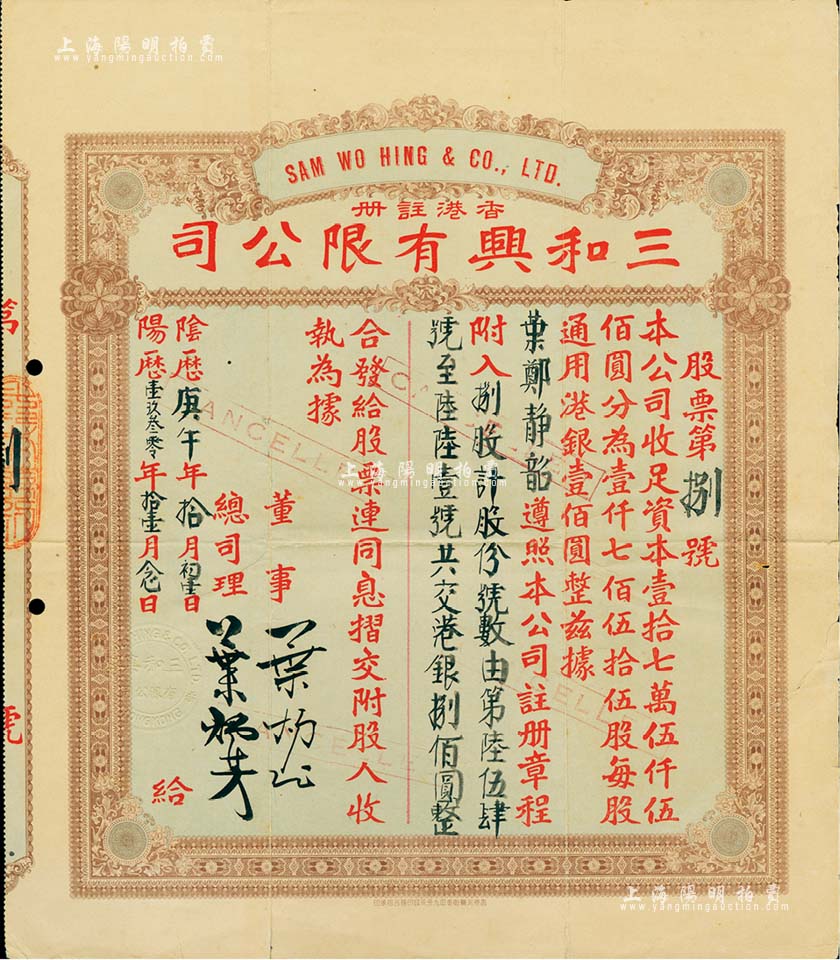 上海陽明拍賣
www.yangmingauction.com
SAM WO HING & CO., LTD.
香港註册
三和興有限公司
股票第捌號
本公司收足資本壹拾七萬伍仟伍
佰圓分為壹仟七佰伍拾伍股每股
通用港銀壹佰圓整兹據
葉鄭靜韶遵照本公司註册章程
附入捌股計股份號數由第陸伍肆
號至陸陸壹號共交港銀捌佰圓整
合發給股票連同息摺交附股人收
執為據
董事
總司理
葉炳芳
給
陰歷庚午年拾月初壹日
陽歷壹玖叁零年拾壹月念日
CANCELLED
CANCELLED
CANCELLED
CANCELLED
HING & CO. LTD.
HONG KONG
三和
第
捌
號
上海陽明拍賣
www.yangmingauction.com
上海陽明拍賣
www.yangmingauction.com